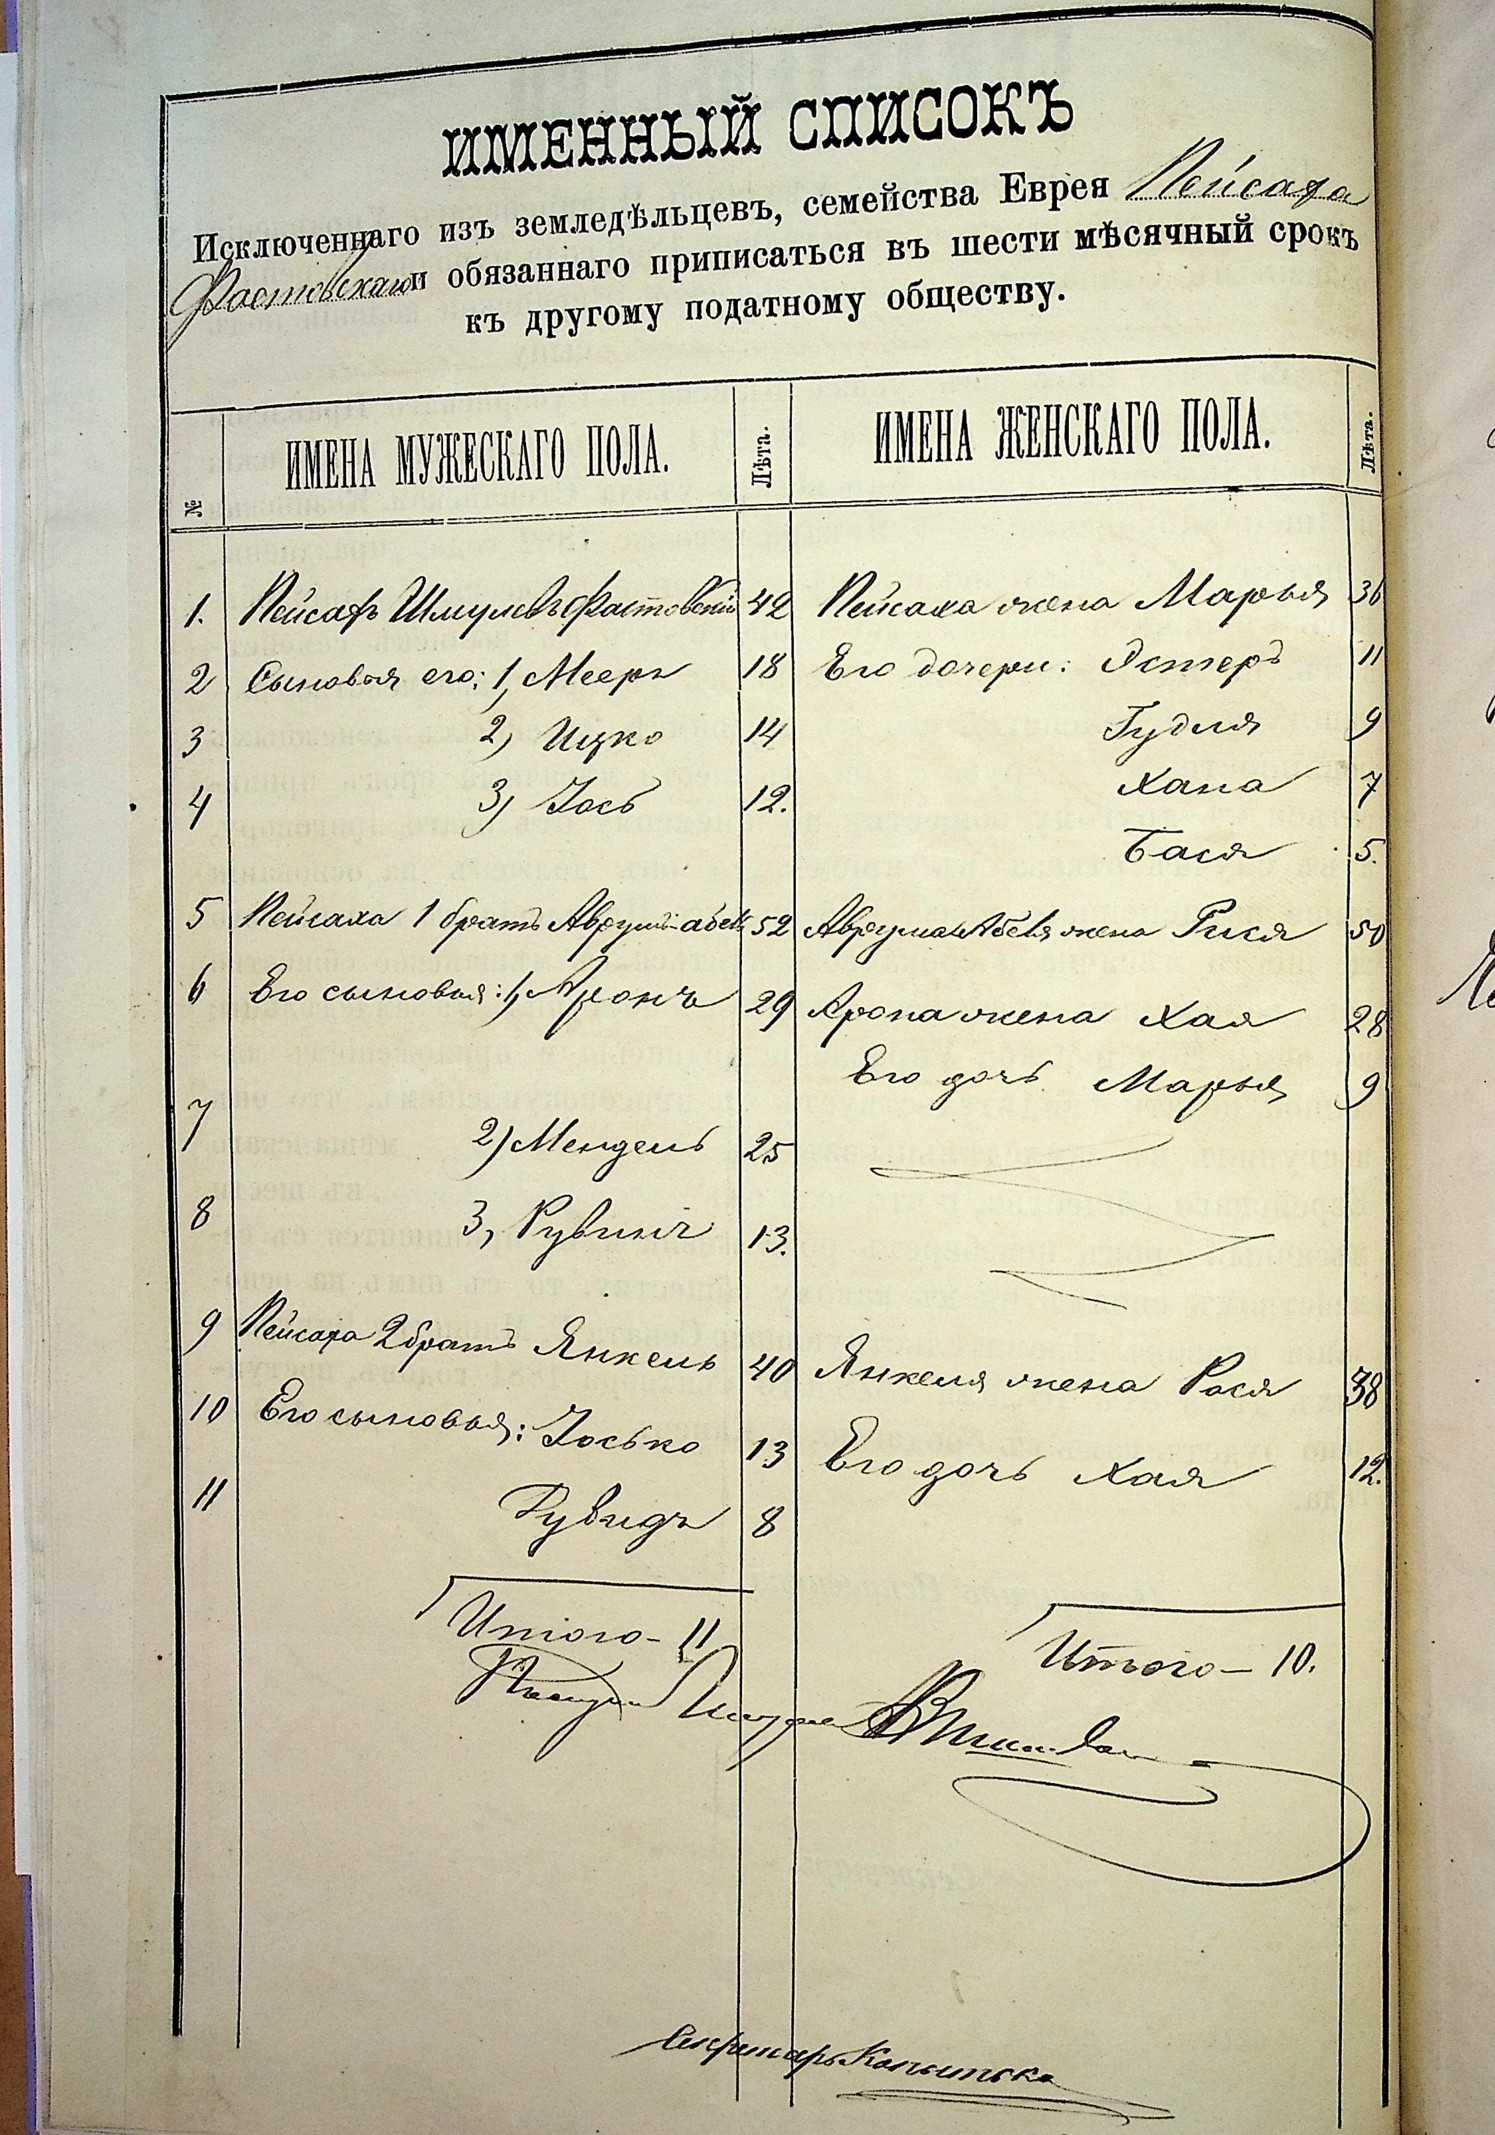 ИМЕННЫЙ СПИСОКЪ
Исключеннаго изъ земледѣльцевъ, семейства Еврея Пейсаха
Фастовскаго и обязаннаго приписаться въ шести мѣсячный срокъ
къ другому податному обществу.
№ ИМЕНА МУЖЕСКАГО ПОЛА. Лѣта. ИМЕНА ЖЕНСКАГО ПОЛА. Лѣта.
1. Пейсахъ Шмулевъ Фастовскій 42 Пейсаха жена Марья 36
2 Сыновья его: 1, Мееръ 18 Его дочери: Эстеръ 11
3 2) Ицко 14 Гудля 9
4 3) Іось 12. Хана 7
Бася 5.
5 Пейсаха 1 братъ Аврумъ-абель 52 Аврума-Абеля жена Рися 50
6 Его сыновья: 1, Аронъ 29 Арона жена Хая 28
Его дочь Марья 9
7 2) Мендель 25
8 3, Рувинъ 13.
9 Пейсаха 2 братъ Янкель 40 Янкеля жена Рося 38
10 Его сыновья: Іосько 13 Его дочь Хая 12.
11 Рувидъ 8
Итого - 11
Итого - 10.
Секретарь